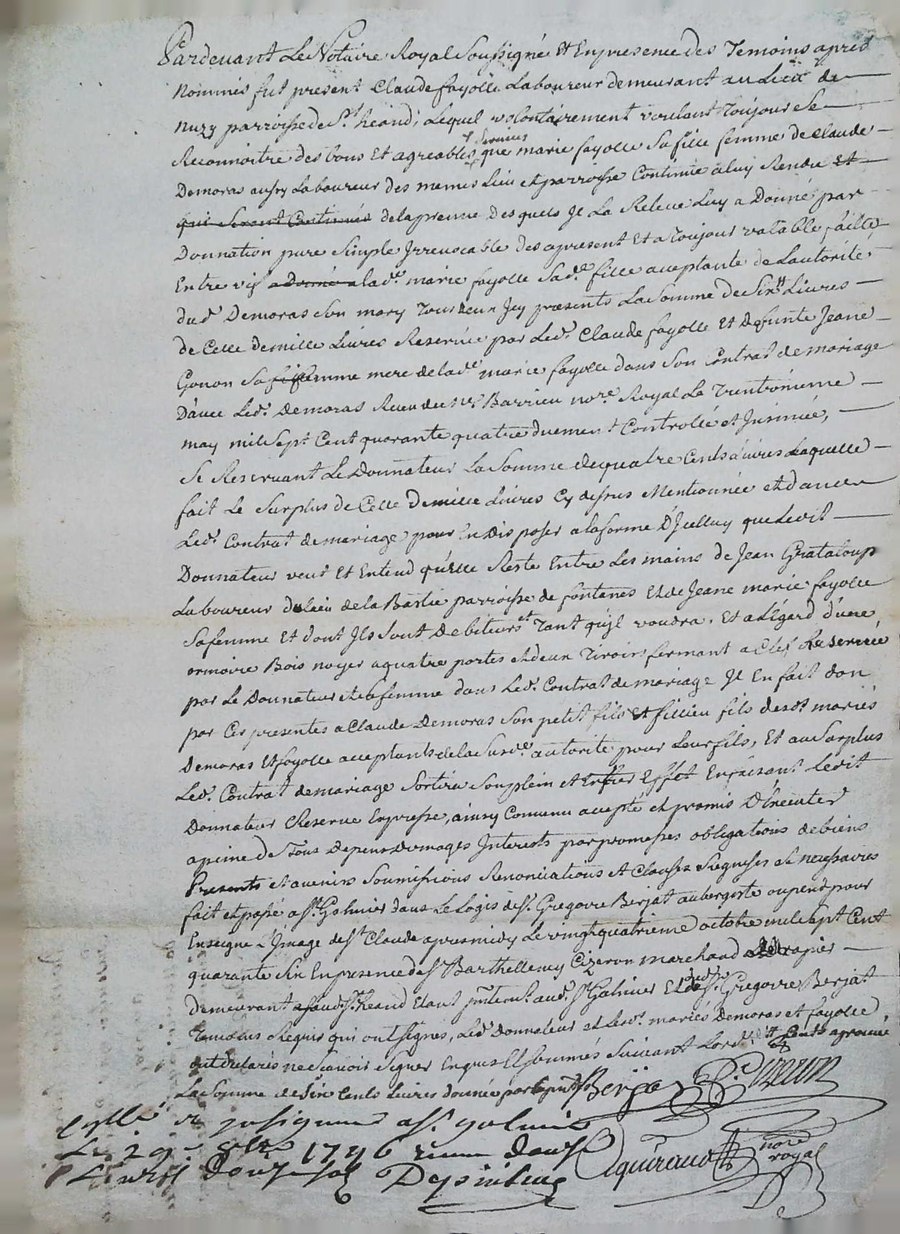 Pardevant Le Notaire Royal Soussigné Et En presence des Temoins apres
Nommés fut present Claude fayolle Laboureur demeurant au Lieu de
Nuzy parroisse de St. heand, Lequel volontairement voulant Toujours se
Services
Reconnoitre des bons Et agreables que marie fayolle Sa fille femme de Claude
Demoras aussy Laboureur des memes Lieu et parroisse Continue a luy Rendre Et
qui Seront Continués de la preuve des quels Je La Releve Luy a Donné par
Donnation pure Simple Irrevocable des apresent Et a Toujour valable faitte
Entre vifs a donné a lad.e marie fayolle Sad.e fille aceptante de Lautorité
dud. Demoras Son mary Tous deux Jcy presents La Somme de Six Cts Livres
de Celle de mille Livres Reservée par Led. Claude fayolle Et defunte Jeane
Gonon Sa femme mere de lad.e marie fayolle dans Son Contrat de mariage
Davec Led. Demoras Receu de me Barrieu nore. Royal Le Trentroisieme
may mil Sept Cent quarante quatre duement Controllé et Insinué,
Se Reservant Le Donnateur La Somme de quatre Cents Livres Laquelle
fait Le Surplus de Celle de mille Livres Cy dessus Mentionnée et dance
Led. Contrat de mariage pour En Disposer a la forme D'Jcelluy que Ledit
Donnateur veut Et Entend qu'elle Reste Entre Les mains de Jean Grataloup
Laboureur du Lieu de la Bastie parroisse de fontanes Et de Jeane marie fayolle
Sa femme Et dont Jls Sont Debiteurs Tant qu'jl voudra. Et a L'Egard d'une
ormoire Bois noyer a quatre portes et deux Tiroirs fermant a Clef Reservée
par Le Donnateur et Sa femme dans Led. Contrat de mariage Jl En fait don
par Ces presentes a Claude Demoras Son petit fils Et fillieu fils desd. mariés
Demoras Et fayolle acceptants de la Susd.e autorité pour Leur fils, Et au Surplus
Led. Contrat de mariage Sortira Son plein et Entier Effet En faisant Ledit
Donnateur Reserve Expresse, ainsy Convenu accepté et promis D'Executer
a peine de Tous Depens Domages Interests par promesses obligations de biens
Presents et avenirs Soumissions Renonciations Et Clauses Requises Et necessaires
fait et passé a St. Galmier dans Le Logis de Sr. Gregoire Berjat aubergiste ou pend pour
Enseigne L'Jmage de St Claude apres midy Le vingt quatrieme octobre mil Sept Cent
quarante Six En presence de Sr Barthellemy Cizeron marchand drapier
demeurant aud. St. heand Etant aud. St Galmier Et dud. Sr. Gregoire Berjat
Temoins Requis qui ont signés, Led. Donnateur et Lesd. mariés Demoras et fayolle
ont declarés ne Scavoir Signer Enquis Et Sommés Suivant Lord.
La Somme de Six Cents Livres donnée par
Berjat B. Cizeron
a St. galmier
Le 29e 8bre 1746 Receu douse
Livres douze sols
nore royal